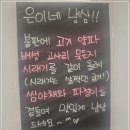 은이네 냉삼!!
불판에 고기 양파
버섯 고사리 묵은지
시래기를 같이 올려
(시래기는 살짝만 굽기)
쌈야채와 파절이를
곁들여 맛있게 냠냠
드세요